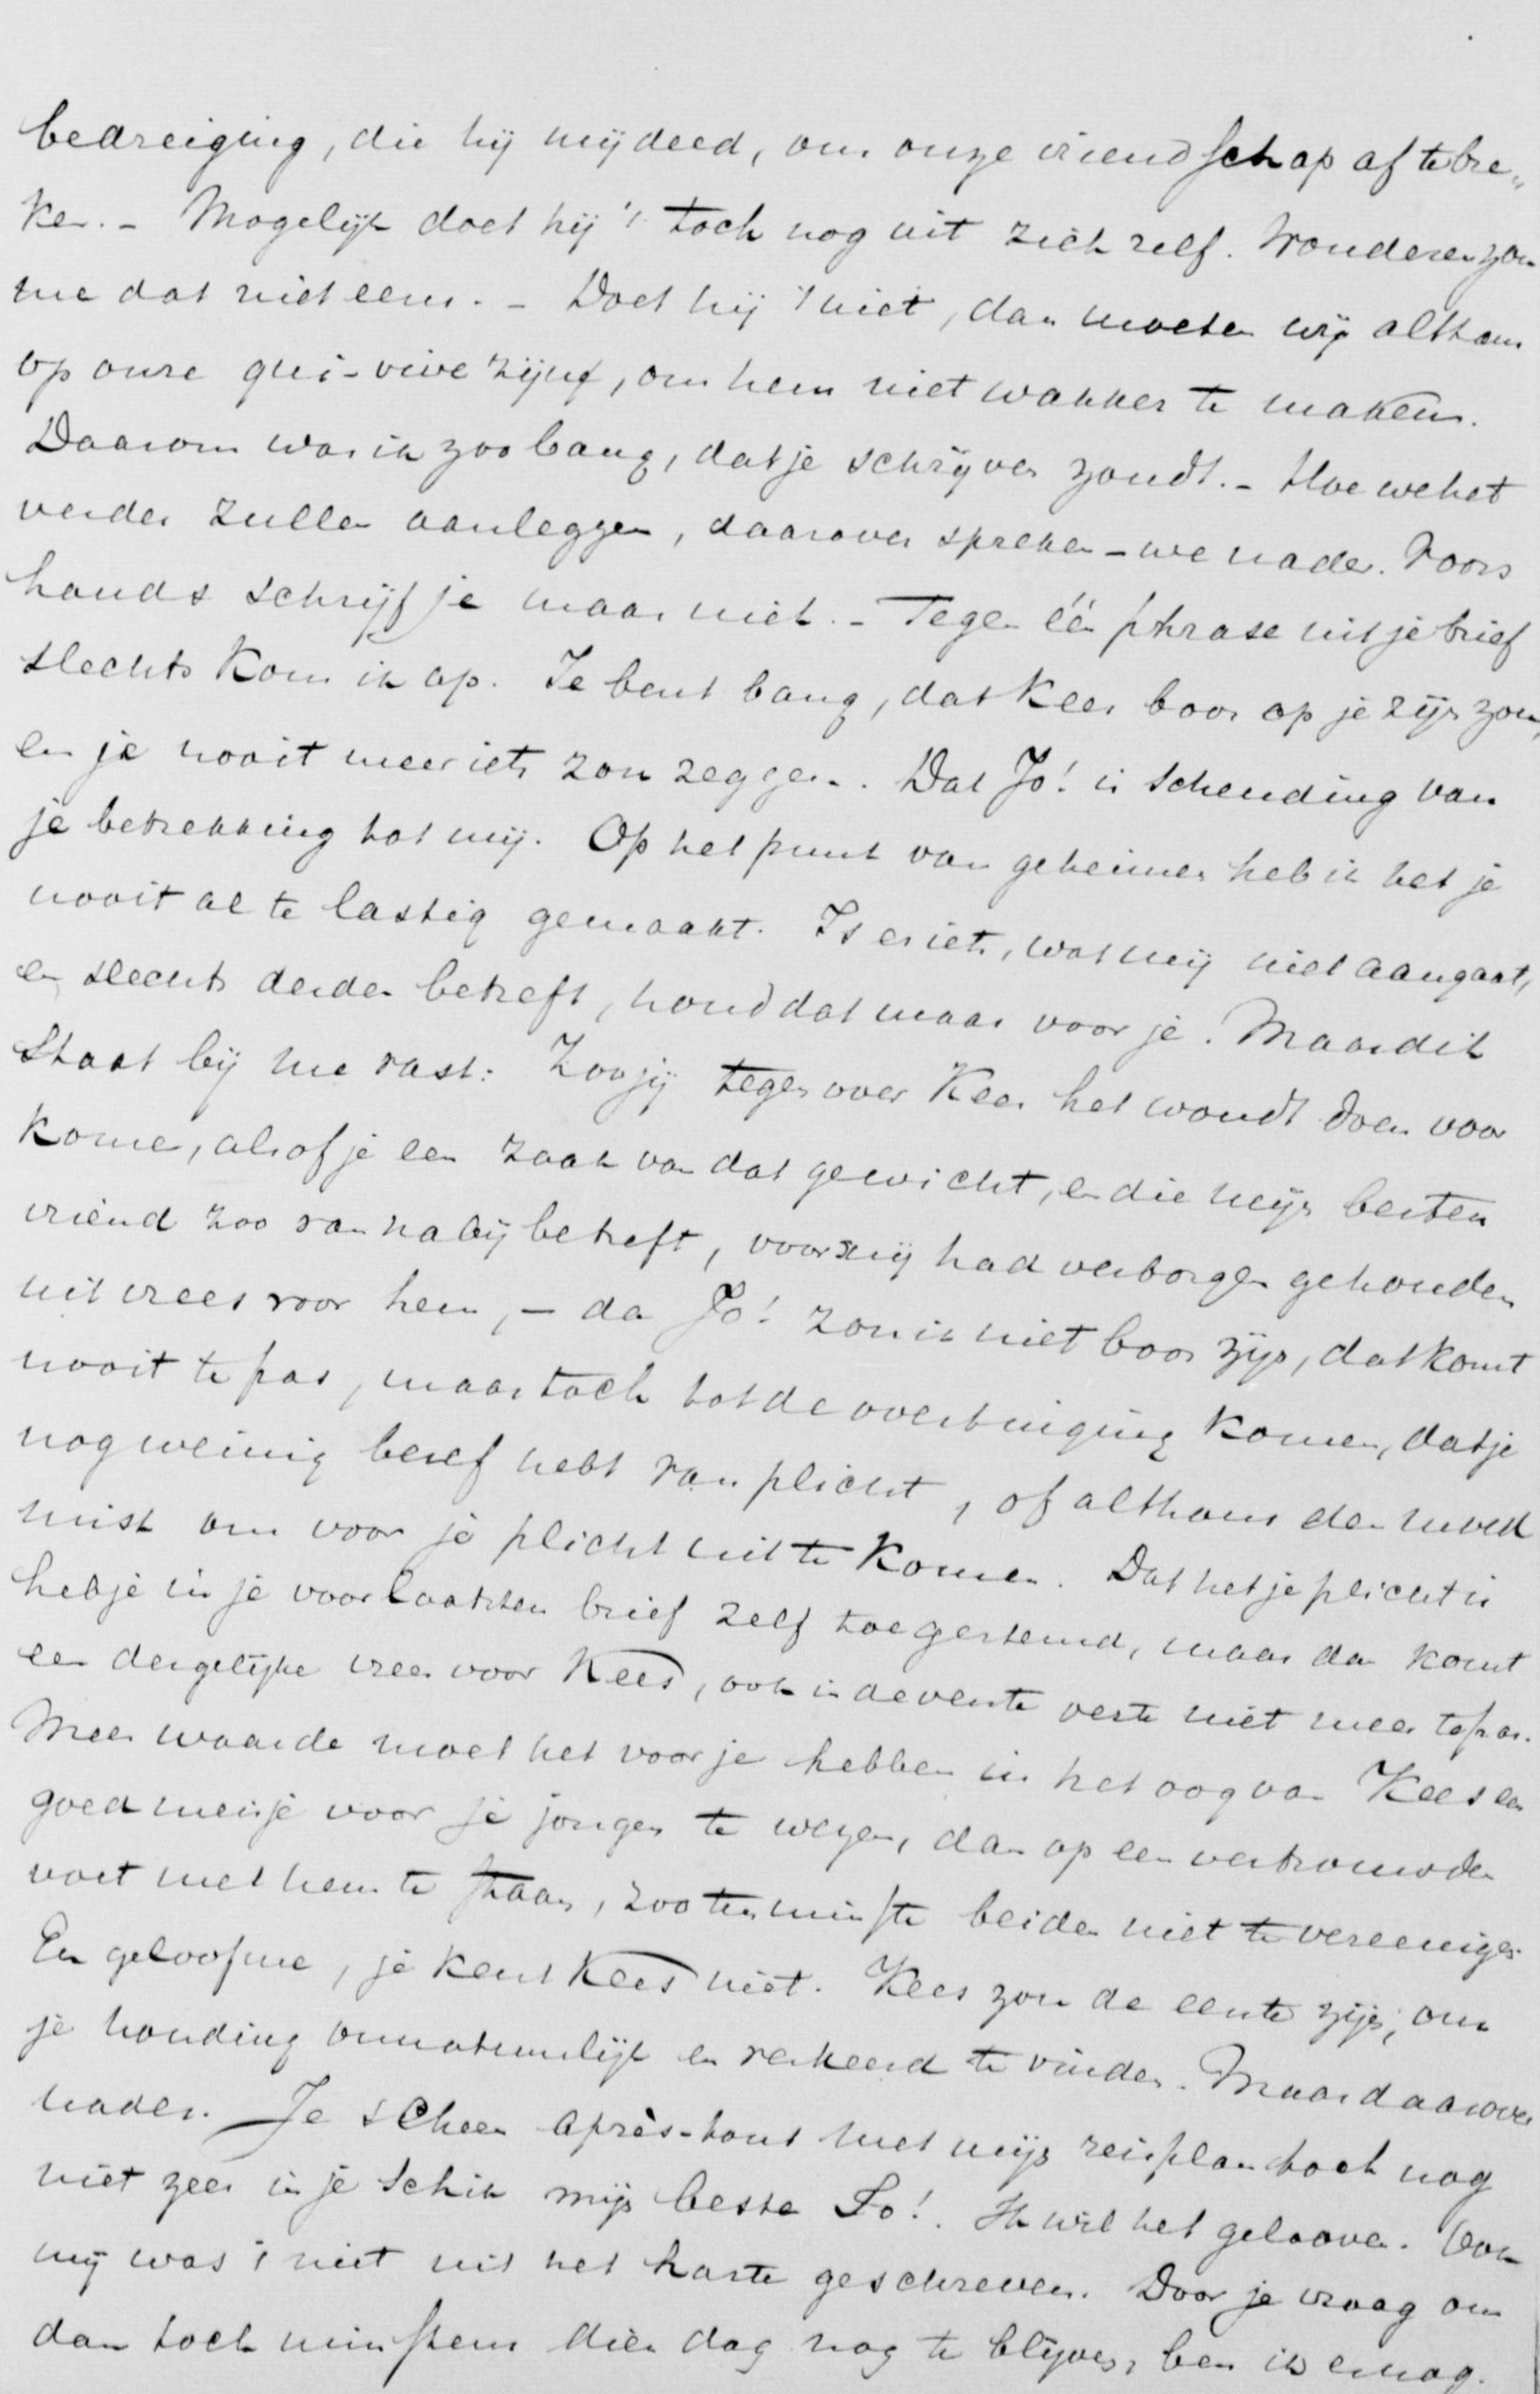 bedreiging, die hij mij deed, om onze vriendschap af te bre„
ken. – Mogelijk doet hij 't toch nog uit zich zelf. Wonderen zou
me dat niet eens. – Doet hij 't niet, dan moeten wij althans
op onze qui-vive zijn, om hem niet wakker te maken.
Daarom was ik zoo bang, dat je schrijven zoudt. – Hoe we het
verder zullen aanleggen, daarover spreken – we nader. Voors
hands schrijf je maar niet. – Tegen één phrase uit je brief
slechts kom ik op. Je bent bang, dat Kees boos op je zijn zou,
en je nooit meer iets zou zeggen. Dat Jo! is schending van
je betrekking tot mij. Op het punt van geheimen heb ik het je
nooit al te lastig gemaakt. Is er iets, wat mij niet aangaat,
en slechts derden betreft, houd dat maar voor je. Maar dit
staat bij me vast: Zoo jij tegenover Kees het woudt doen voor
komen, alsof je een zaak van dat gewicht, en die mijn besten
vriend zoo van nabij betreft, voor mij had verborgen gehouden
uit vrees voor hem, – dan Jo! zou ik niet boos zijn, dat komt
nooit te pas, maar toch tot de overtuiging komen, dat je
nog weinig besef hebt van plicht, of althans den moed
mist om voor je plicht uit te komen. Dat het je plicht is
heb je in je voorlaatsten brief zelf toegestemd, maar dan komt
een dergelijke vrees voor Kees, ook in de verste verte niet meer te pas.
Meer waarde moet het voor je hebben in het oog van Kees een
goed meisje voor je jongen te wezen, dan op een vertrouwden
voet met hem te staan, zoo tenminste beiden niet te vereenigen
En geloof me, je kent Kees niet. Kees zou de eerste zijn, om
je houding onnatuurlijk en verkeerd te vinden. Maar daarover
nader. Je scheen après-tout met mijn reisplan toch nog
niet zeer in je schik mijn beste Jo!. Ik wil het gelooven. Ook
mij was 't niet uit het harte geschreven. Door je vraag om
dan toch minstens dien dag nog te blijven, ben ik